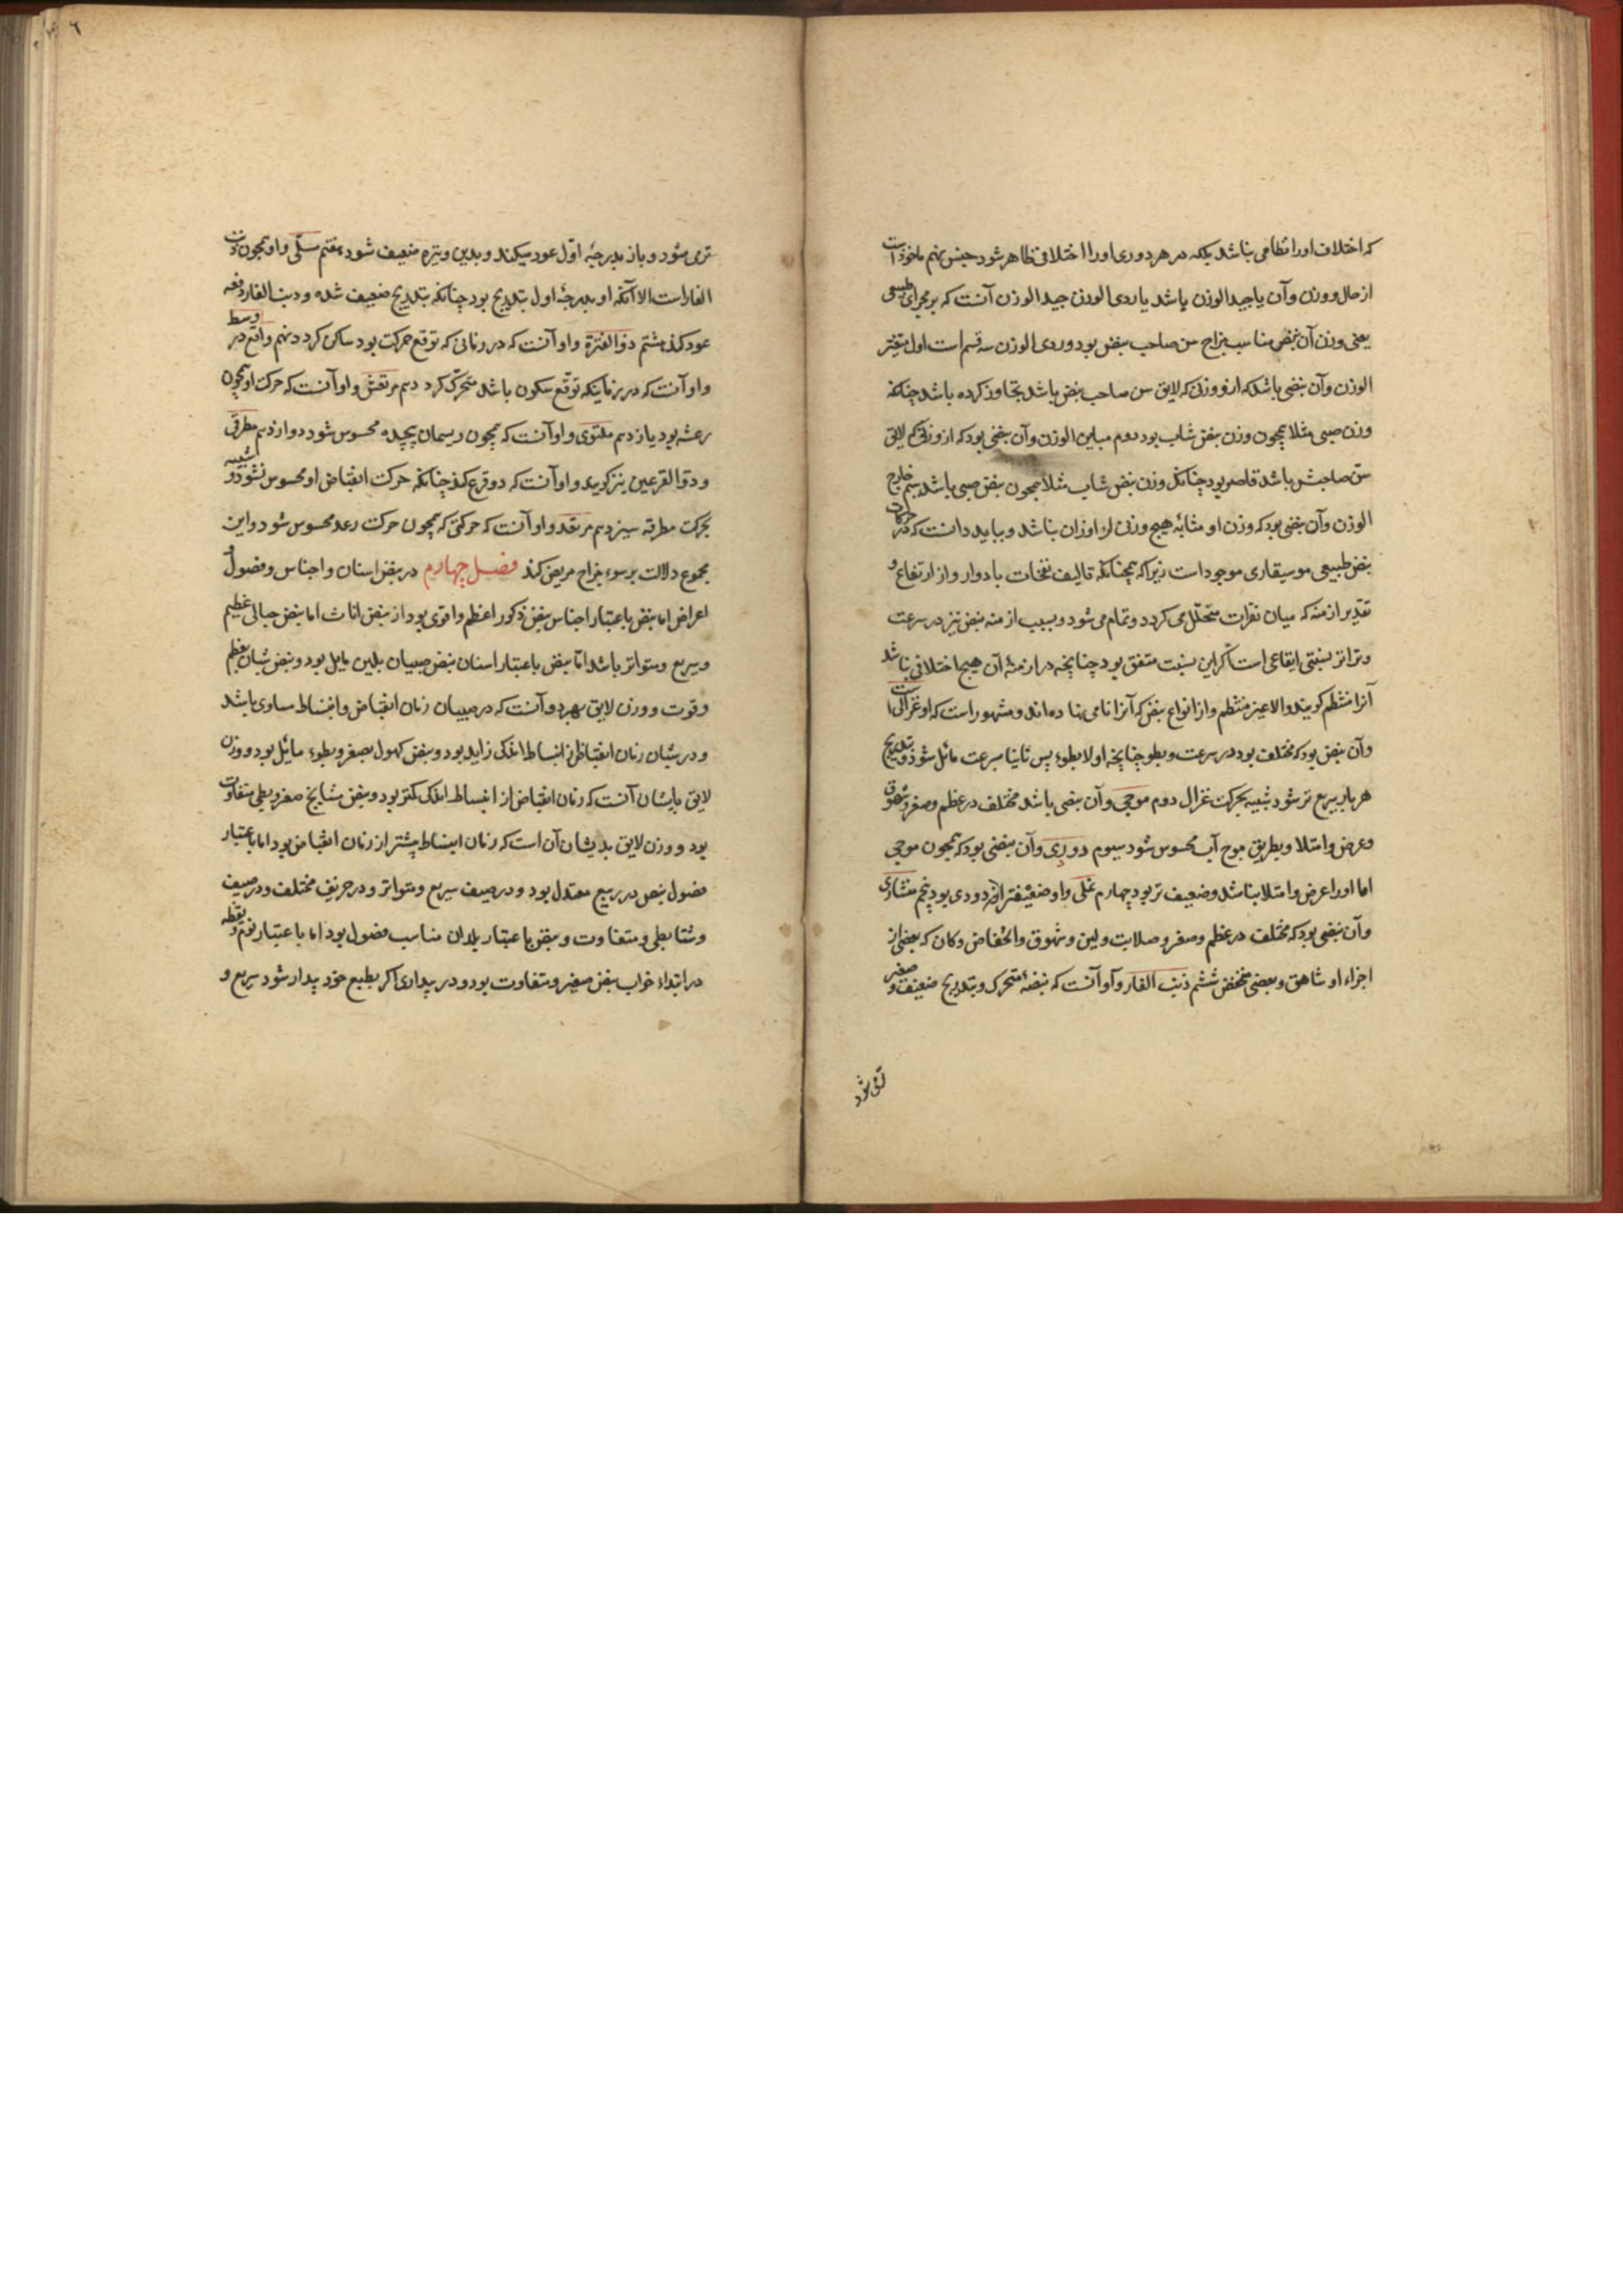 که اختلاف اورا نظامی نباشد بلکه در هر دوری اورا اختلافی ظاهر شود جنس نهم ماخوذ است
از حال وزن وآن یا جید الوزن باشد یا ردی الوزن جید الوزن آنست که بر مجرای طبیعی
یعنی وزن آن نبض مناسب مزاج سن صاحب نبض بود وردی الوزن سه قسم است اول متغیر
الوزن وآن نبضی باشد که از وزنی که لایق سن صاحب نبض باشد تجاوز کرده باشد چنانکه
وزن صبی مثلا همچون وزن نبض شاب بود دوم مباین الوزن وآن نبضی بود که از وزنی که لایق
سن صاحبش باشد قاصر بود چنانکه وزن نبض شاب مثلا همچون نبض صبی باشد سیم خارج
الوزن وآن نبضی بود که وزن او مشابه هیچ وزنی از اوزان نباشد و بباید دانست که در حرکات
نبض طبیعی موسیقاری موجود است زیرا که همچنانکه تالیف نغمات بادوار واز ارتفاع و
تقدیر ازمنه که میان نقرات متخلل می کردد وتمام می شود وبسبب ازمنه نبض نیز در سرعت
وتواتر نسبتی ایقاعی است اگر این نسبت متفق بود چنانچه در ازمنه آن هیچ اختلافی نباشد
آنرا منتظم کویند والا غیر منتظم واز انواع نبض که آنرا نامی نهاده اند ومشهور است که او غزالی است
وآن نبضی بود که مختلف بود در سرعت وبطو چنانچه اولا بطوء پس ثانیا سرعت مائل شود وبتدریج
هر بار سریع تر شود شبیه بحرکت غزال دوم موجی وآن نبضی باشد مختلف در عظم وصغر وشهوق
وعرض وامتلا وبطریق موج آب محسوس شود سیوم دودی وآن نبضی بود که همچون موجی
اما اورا عرض وامتلا نباشد وضعیف تر بود چهارم نملی واو ضعیفتر از دودی بود پنجم منشاری
وآن نبضی بود که مختلف در عظم وصغر وصلابت ولین وشهوق وانخفاض وکان که بعضی از
اجزاء او شاهق وبعضی منخفض ششم ذنب الفار وآو آنست که نبضه متحرک وبتدریج ضعیف وصغیر
تری شود
تری شود وباز بدرجه اوّل عود میکند وبدین وتیره ضعیف شود هفتم مسلّی واو همچون ذنب
الفار است الا آنکه او بدرجه اول بتدریج بود چنانکه بتدریج ضعیف شده وذنب الفار دفعه
عود کند هشتم ذو الفترة واو آنست که در زمانی که توقع حرکت بود ساکن کردد نهم واقع در وسط
واو آنست که در زمانیکه توقّع سکون باشد متحرّک کردد دهم مرتعش واو آنست که حرکت او همچون
رعشه بود یازدهم ملتوی واو آنست که همچون ریسمان پیچیده محسوس شود دوازدهم مطرقی
وذو القرعتین نیز کویند واو آنست که دو قرع کند چنانکه حرکت انقباض او محسوس نشود وشبیه
بحرکت مطرقه سیزدهم مرتعد واو آنست که حرکتی که همچون حرکت رعد محسوس شود واین
مجموع دلالت بر سوء مزاج مریض کند فصل چهارم در نبض اسنان واجناس وفصول و
اعراض اما نبض باعتبار اجناس نبض ذکور اعظم واقوی بود از نبض اناث اما نبض حبالی عظیم
وسریع ومتواتر باشد اما نبض باعتبار اسنان نبض صبیان بلین مایل بود ونبض شبان بعظم
وقوت ووزن لایق بهر دو آنست که در صبیان زمان انقباض وانبساط مساوی باشد
ودر شبان زمان انقباض از انبساط اندکی زاید بود ونبض کهول بصغر وبطوء مائل بود ووزن
لایق بایشان آنست که زمان انقباض از انبساط اندک کمتر بود ونبض مشایخ صغیر وبطی متفاوت
بود ووزن لایق بدیشان آن است که زمان انبساط بیشتر از زمان انقباض بود اما باعتبار
فصول نبض در ربیع معتدل بود ودر صیف سریع ومتواتر ودر خریف مختلف ودر صیف
وشتا بطی ومتفاوت ونبض باعتبار بلدان مناسب فصول بود اما باعتبار نوم ویقظه
در ابتداء خواب نبض صغیر ومتفاوت بود ودر بیداری اکر بطبع خود بیدار شود سریع و